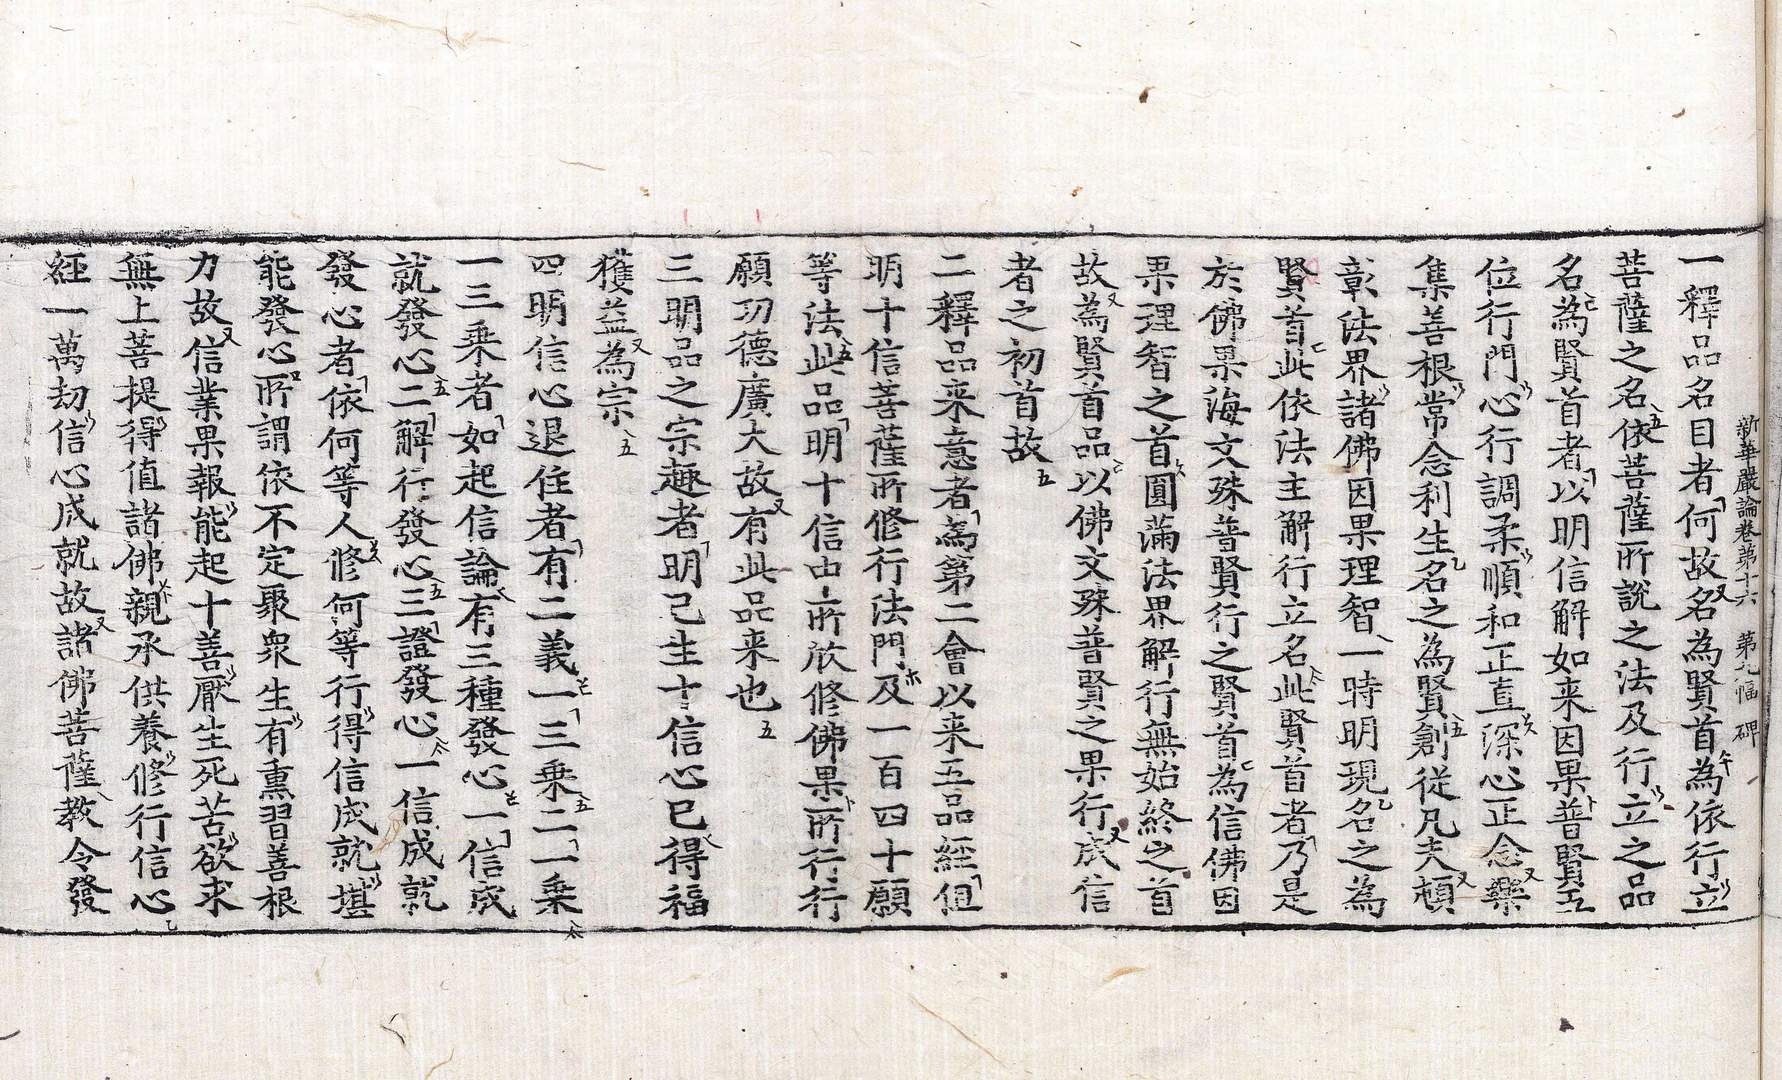 新華嚴論卷第十六 第九幅 碑
一釋品名目者何故名為賢首為依行立
菩薩之名依菩薩所說之法及行立之品
名為賢首者以明信解如来因果普賢五
位行門心行調柔順和正直深心正念樂
集善根常念利生名之為賢創從凡夫頓
彰法界諸佛因果理智一時明現名之為
賢首此依法主解行立名此賢首者乃是
於佛果海文殊普賢行之賢首為信佛因
果理智之首圓滿法界解行無始終之首
故為賢首品以佛文殊普賢之果行成信
者之初首故
二釋品来意者為第二會以来五品經但
明十信菩薩所修行法門及一百四十願
等法此品明十信中所欣修佛果所行行
願功德廣大故有此品来也
三明品之宗趣者明己生十信心已得福
獲益為宗
四明信心退住者有二義一三乘二一乘
一三乘者如起信論有三種發心一信成
就發心二解行發心三證發心一信成就
發心者依何等人修何等行得信成就堪
能發心所謂依不定聚衆生有熏習善根
力故信業果報能起十善厭生死苦欲求
無上菩提得值諸佛親承供養修行信心
經一萬劫信心成就故諸佛菩薩教令發